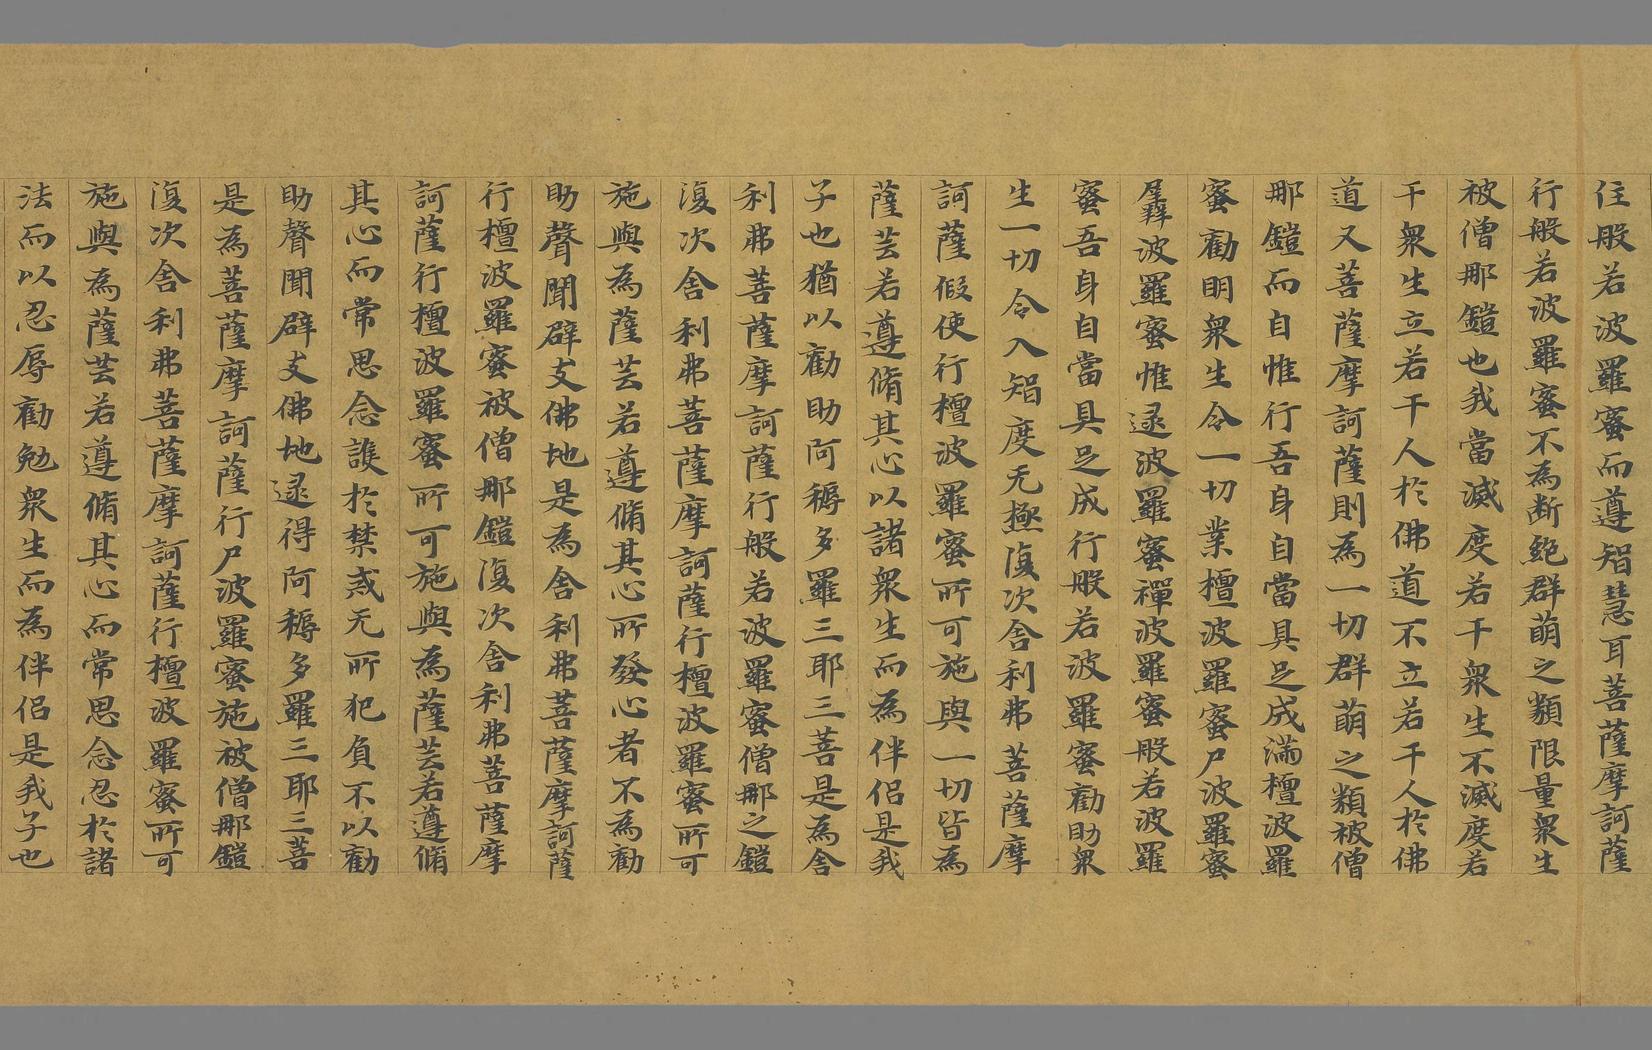 住般若波羅蜜而遵智慧耳菩薩摩訶薩
行般若波羅蜜不為断絕群萌之類限量衆生
被僧那鎧也我當滅度若干衆生不滅度若
干衆生立若干人於佛道不立若干人於佛
道又菩薩摩訶薩則為一切群萌之類被僧
那鎧而自惟行吾身自當具足成滿檀波羅
蜜勸明衆生令一切業檀波羅蜜尸波羅蜜
羼波羅蜜惟逯波羅蜜禪波羅蜜般若波羅
蜜吾身自當具足成行般若波羅蜜勸助衆
生一切令入智度无極復次舍利弗菩薩摩
訶薩假使行檀波羅蜜所可施與一切皆為
薩芸若遵脩其心以諸衆生而為伴侶是我
子也猶以勸助阿耨多羅三耶三菩是為舍
利弗菩薩摩訶薩行般若波羅蜜僧那之鎧
復次舍利弗菩薩摩訶薩行檀波羅蜜所可
施與為薩芸若遵脩其心所發心者不為勸
助聲聞辟支佛地是為舍利弗菩薩摩訶薩
行檀波羅蜜被僧那鎧復次舍利弗菩薩摩
訶薩行檀波羅蜜所可施與為薩芸若遵脩
其心而常思念護於禁戒无所犯負不以勸
助聲聞辟支佛地逯得阿耨多羅三耶三菩
是為菩薩摩訶薩行尸波羅蜜施被僧那鎧
復次舍利弗菩薩摩訶薩行檀波羅蜜所可
施與為薩芸若遵脩其心而常思念忍於諸
法而以忍辱勸勉衆生而為伴侶是我子也